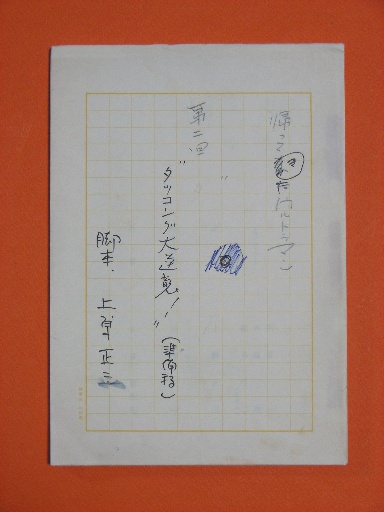 帰ってきたウルトラマン
第二回
"タッコング大逆襲！"
（準備稿）
脚本、上原正三